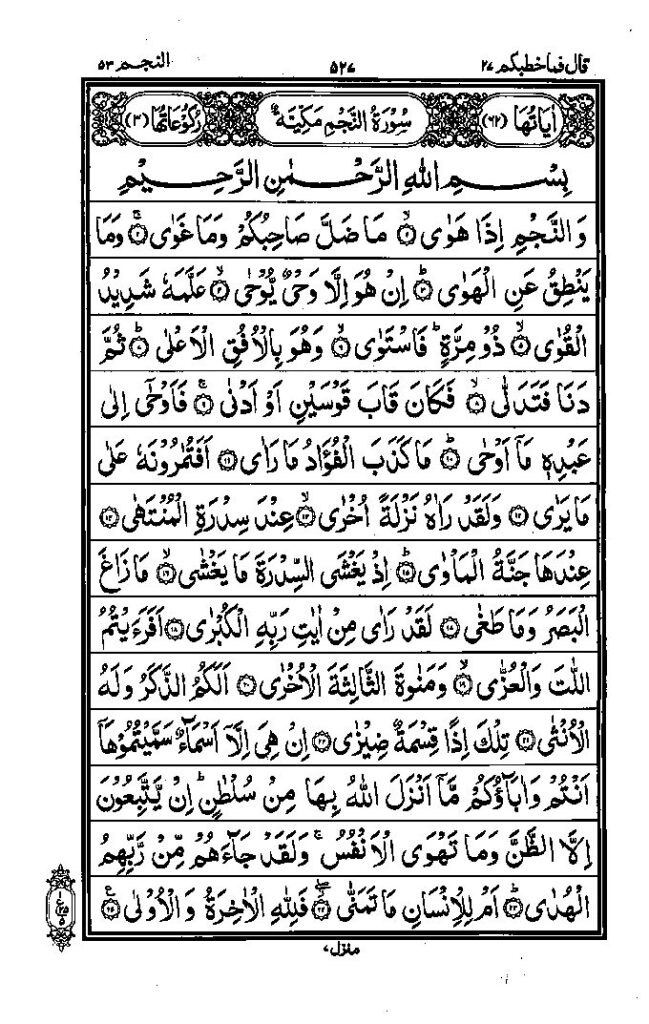 قال فما خطبكم ٢٧ ٥٢٧ النجم ٥٣
اٰيَاتُهَا (٦٢) سُوْرَةُ النَّجْمِ مَكِّيَّةٌ رُكُوْعَاتُهَا (٣)
بِسْمِ اللهِ الرَّحْمٰنِ الرَّحِيْمِ
وَالنَّجْمِ اِذَا هَوٰى ۝١ مَا ضَلَّ صَاحِبُكُمْ وَمَا غَوٰى ۝٢ وَمَا
يَنْطِقُ عَنِ الْهَوٰى ۝٣ اِنْ هُوَ اِلَّا وَحْىٌ يُّوْحٰى ۝٤ عَلَّمَهٗ شَدِيْدُ
الْقُوٰى ۝٥ ذُوْ مِرَّةٍ ؕ فَاسْتَوٰى ۝٦ وَهُوَ بِالْاُفُقِ الْاَعْلٰى ۝٧ ثُمَّ
دَنَا فَتَدَلّٰى ۝٨ فَكَانَ قَابَ قَوْسَيْنِ اَوْ اَدْنٰى ۝٩ فَاَوْحٰۤى اِلٰى
عَبْدِهٖ مَاۤ اَوْحٰى ۝١٠ مَا كَذَبَ الْفُؤَادُ مَا رَاٰى ۝١١ اَفَتُمٰرُوْنَهٗ عَلٰى
مَا يَرٰى ۝١٢ وَلَقَدْ رَاٰهُ نَزْلَةً اُخْرٰى ۝١٣ عِنْدَ سِدْرَةِ الْمُنْتَهٰى ۝١٤
عِنْدَهَا جَنَّةُ الْمَاْوٰى ۝١٥ اِذْ يَغْشَى السِّدْرَةَ مَا يَغْشٰى ۝١٦ مَا زَاغَ
الْبَصَرُ وَمَا طَغٰى ۝١٧ لَقَدْ رَاٰى مِنْ اٰيٰتِ رَبِّهِ الْكُبْرٰى ۝١٨ اَفَرَءَيْتُمُ
اللّٰتَ وَالْعُزّٰى ۝١٩ وَمَنٰوةَ الثَّالِثَةَ الْاُخْرٰى ۝٢٠ اَلَكُمُ الذَّكَرُ وَلَهُ
الْاُنْثٰى ۝٢١ تِلْكَ اِذًا قِسْمَةٌ ضِيْزٰى ۝٢٢ اِنْ هِىَ اِلَّاۤ اَسْمَآءٌ سَمَّيْتُمُوْهَاۤ
اَنْتُمْ وَاٰبَآؤُكُمْ مَّاۤ اَنْزَلَ اللهُ بِهَا مِنْ سُلْطٰنٍ ؕ اِنْ يَّتَّبِعُوْنَ
اِلَّا الظَّنَّ وَمَا تَهْوَى الْاَنْفُسُ ۚ وَلَقَدْ جَآءَهُمْ مِّنْ رَّبِّهِمُ
الْهُدٰى ۝٢٣ اَمْ لِلْاِنْسَانِ مَا تَمَنّٰى ۝٢٤ فَلِلّٰهِ الْاٰخِرَةُ وَالْاُوْلٰى ۝٢٥
منزل ٧